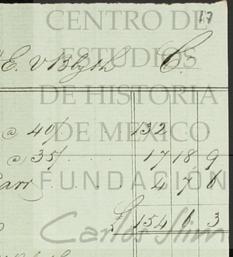 17
CENTRO DE
ESTUDIOS
DE HISTORIA
DE MÉXICO
FUNDACIÓN
Carlos Slim
E. v Blyth Co
@ 40/ 132
@ 35/ 17 18 9
4 7 6
£ 154 6 3